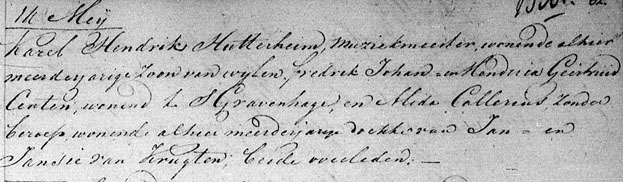 14 Meij
Karel Hendrik Hutterheim, Muziekmeester, wonende alhier
meerderjarige Zoon van wijlen, Fredrik Johan = en Hendrica Geertruid
Centen, wonend te S Gravenhage, en Alida Collerius, Zonder
beroep wonende alhier meerderjarige dochter van Jan = en
Jansje van Krugten, beide overleden. —